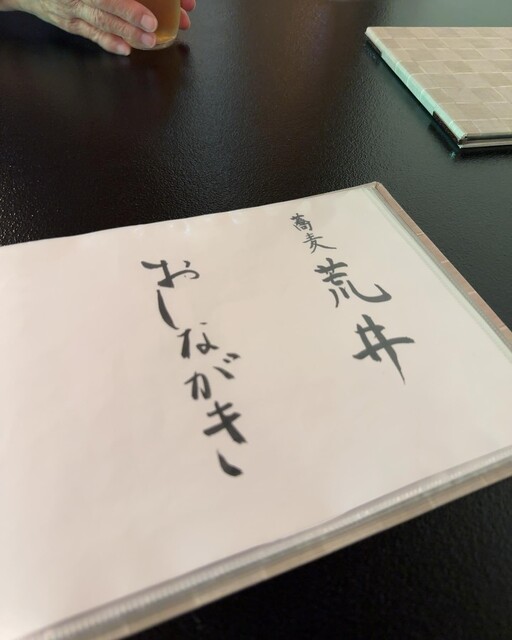 蕎麦 荒井
おしながき